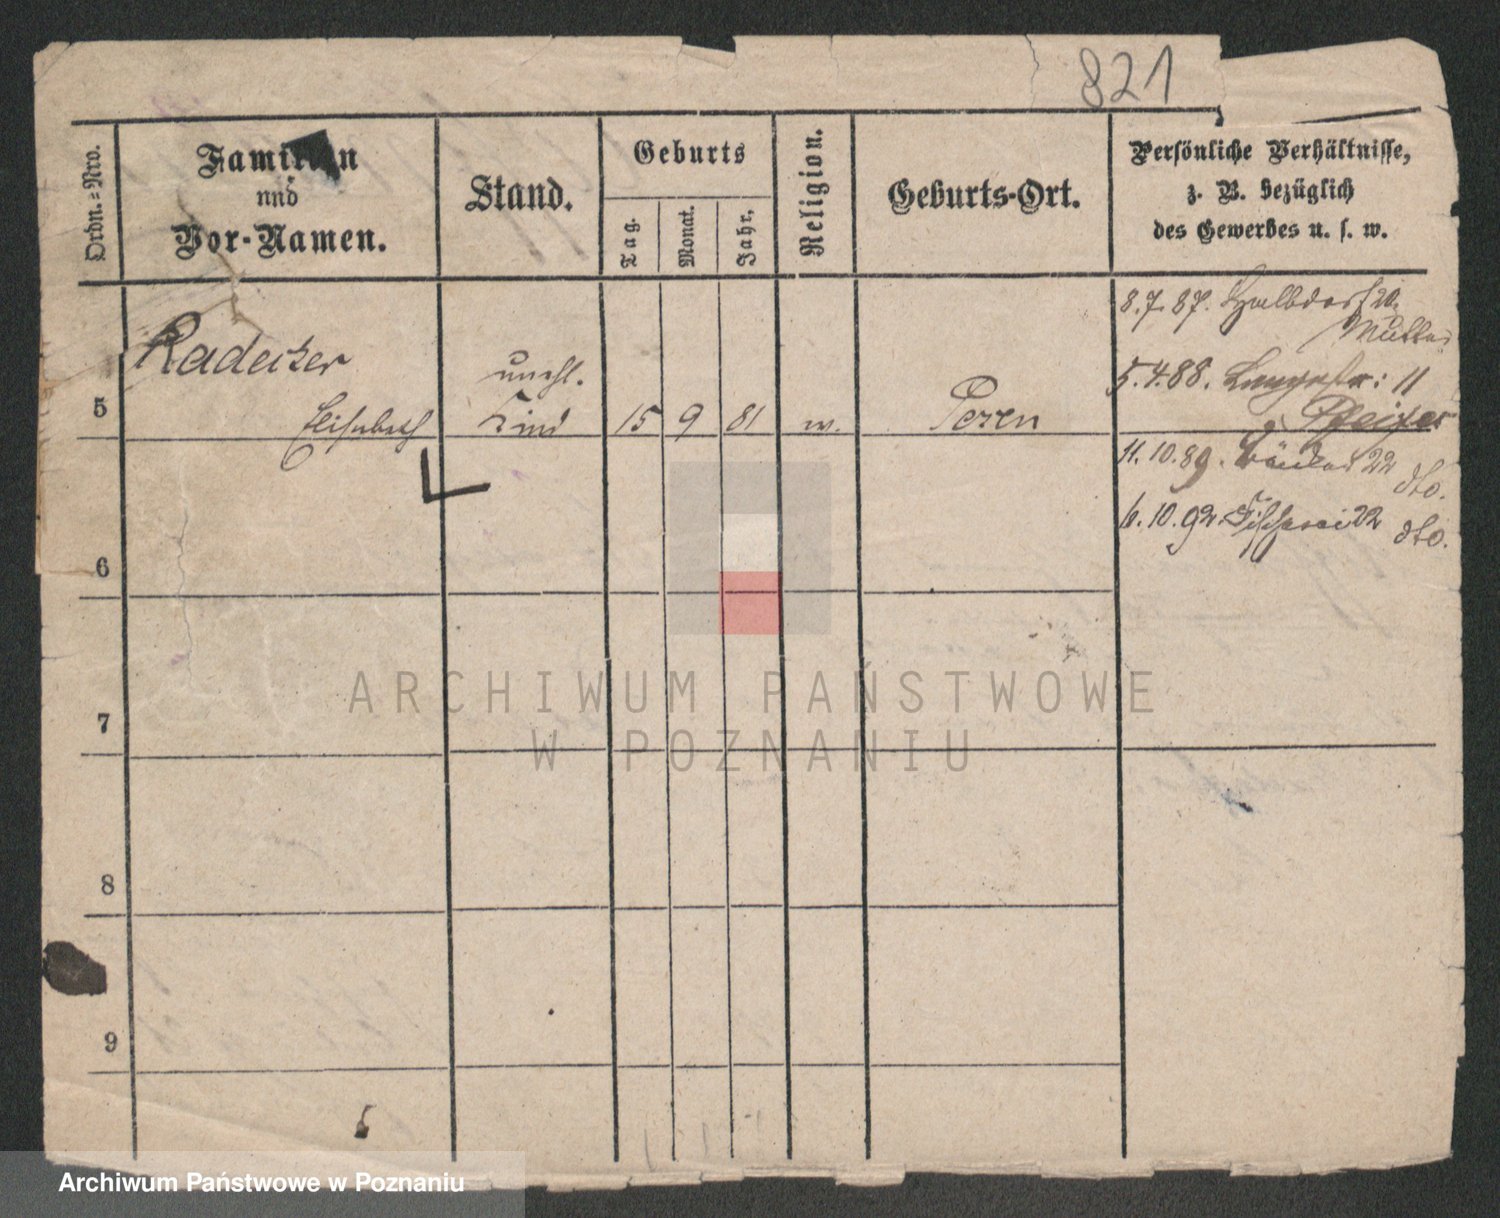 821
Ordn.-Nro.
Familien
und
Vor-Namen.
Stand.
Geburts
Tag.
Monat.
Jahr.
Religion.
Geburts-Ort.
Persönliche Verhältnisse,
z. B. bezüglich
des Gewerbes u. s. w.
5
Radetzer
Elisabeth
unehl.
Kind
15
9
81
w.
Peren
8.7.87. Halbdorf 20.
Mutter
5.4.88. Langestr: 11
Pfeifer
11.10.89. 22
dto.
6.10.92. Fischerei 22
dto.
6
7
8
9
ARCHIWUM PAŃSTWOWE
W POZNANIU
Archiwum Państwowe w Poznaniu